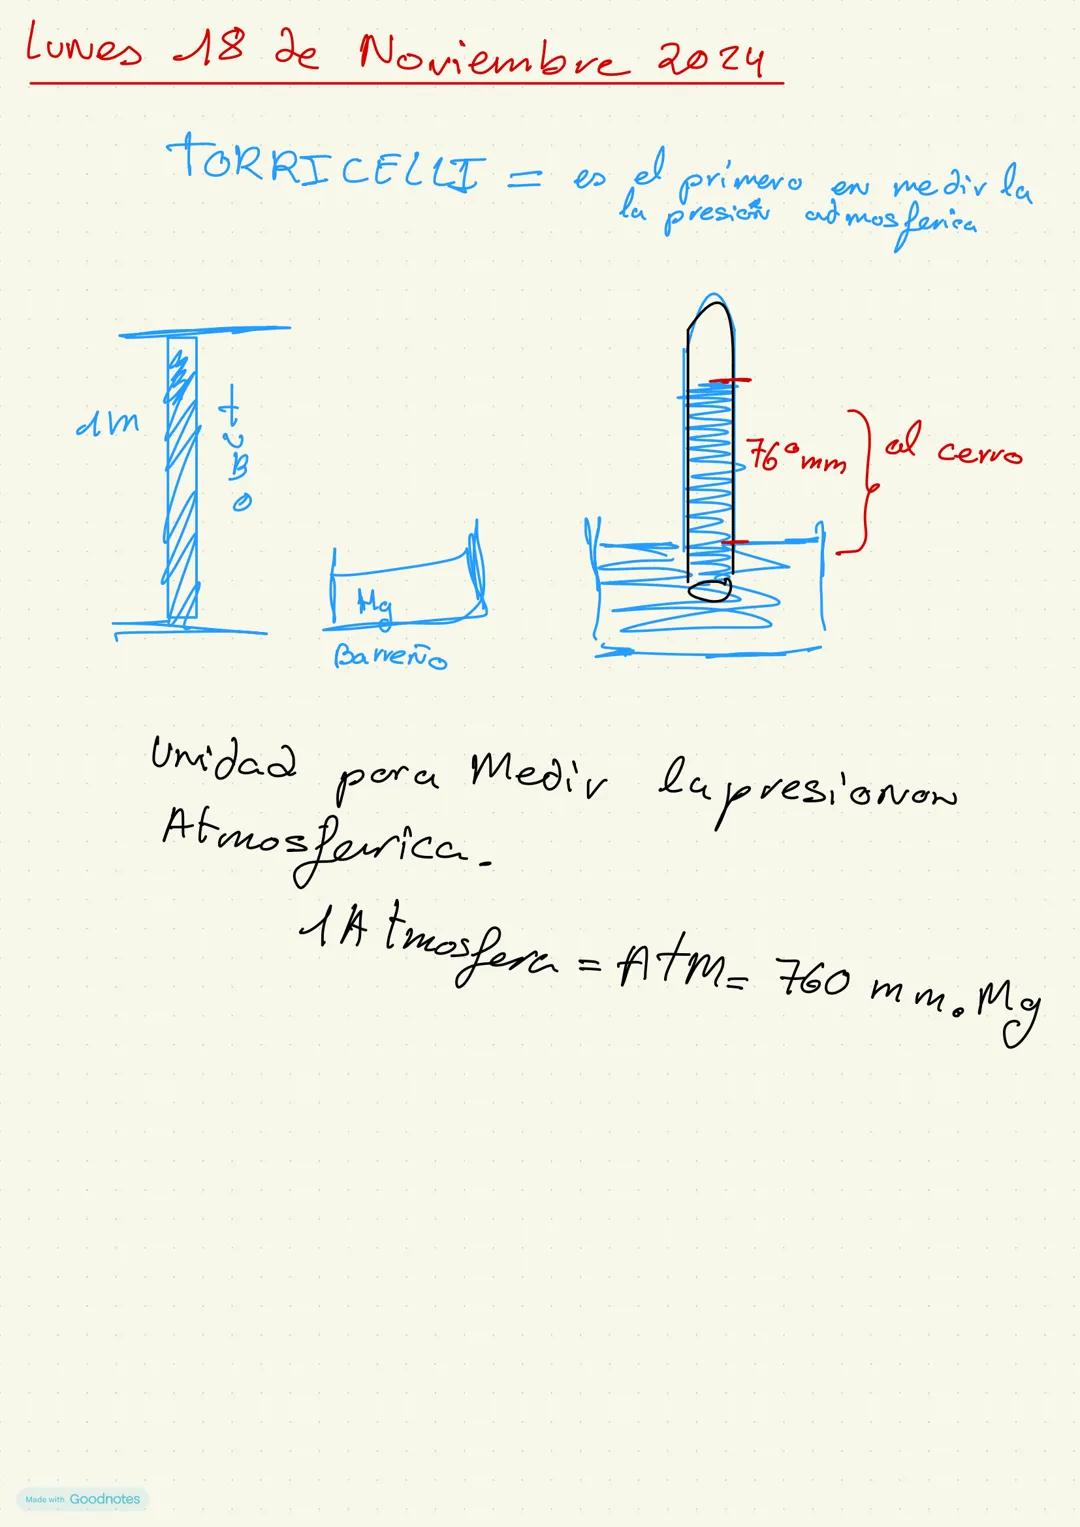 Lunes 18 de Noviembre 2024
TORRICELLI = es el primero en medir la
la presión admosferica
1m
tuBo
Mg
Barreño
760mm
al cerro
Unidad para Medir la presionon
Atmosferrica.
1 Atmosfera = Atm = 760 mm. Mg
Made with Goodnotes